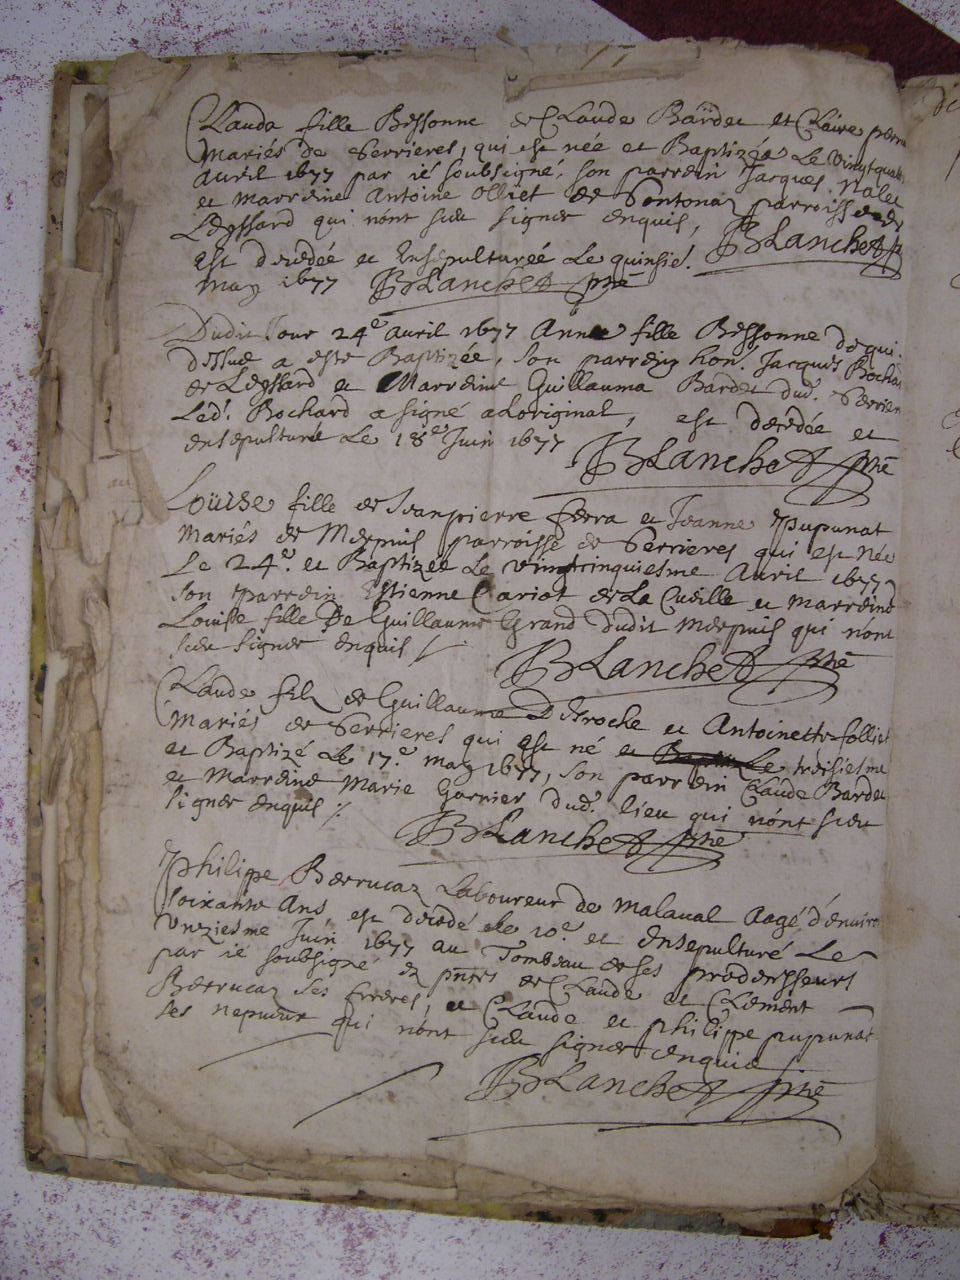 Clauda fille Bessonne de Claude Bardet et Claire
Mariés de Serrieres, qui est née et Baptizée le vingtquat
avril 1677 par ié soubsigné, son parrein Jacques
et marreine Antoine Olliet de Sontonaz parroisse
Leyssard qui nont sceu signer enquis, BLanchet
est decedée et Ensepulturéé Le quinsie.
may 1677 BLanchet ptre
Dudit Jour 24e avril 1677 Anne fille Bessonne de qui
dessus a esté Baptizée, son parrein hon. Jacques Rochard
de Leyssard et Marreine Guillauma Bardet dud. Serrier
Led. Rochard a signé a loriginal, est decedée et
ensepulturée Le 18e Juin 1677 BLanchet ptre
Loüise fille de Jeanpierre ferra et Jeanne pupunat
Mariés de Merpuis parroisse de Serrieres qui est née
Le 24e. et Baptizée Le vingtcinquiesme Avril 1677
son parrein Estienne Cariot de La Cueille et marreine
Louise fille De Guillaume Grand dudit merpuis qui nont
sceu signer enquis BLanchet ptre
Claude filz de Guillaume Deroche et Antoinette Colliet
Mariés de Serrieres qui est né et Le troisiesme
et Baptizé Le 17e. may 1677, son parrein Claude Bardet
et Marreine Marie Garnier dud. lieu qui nónt sceu
signer enquis BLanchet ptre
philippe Berrucaz Laboureur de malaval Aagé d'enviro
soixante Ans, est decedé le 10e et Ensepulturé Le
unziesme Juin 1677 au Tombeau de ses predecesseurs
par ié soubsigné ez pnces de Claude et Clement
Berrucaz ses freres, et Claude et philippe pupunat
ses nepueur qui nónt sceu signer enquis
BLanchet ptre